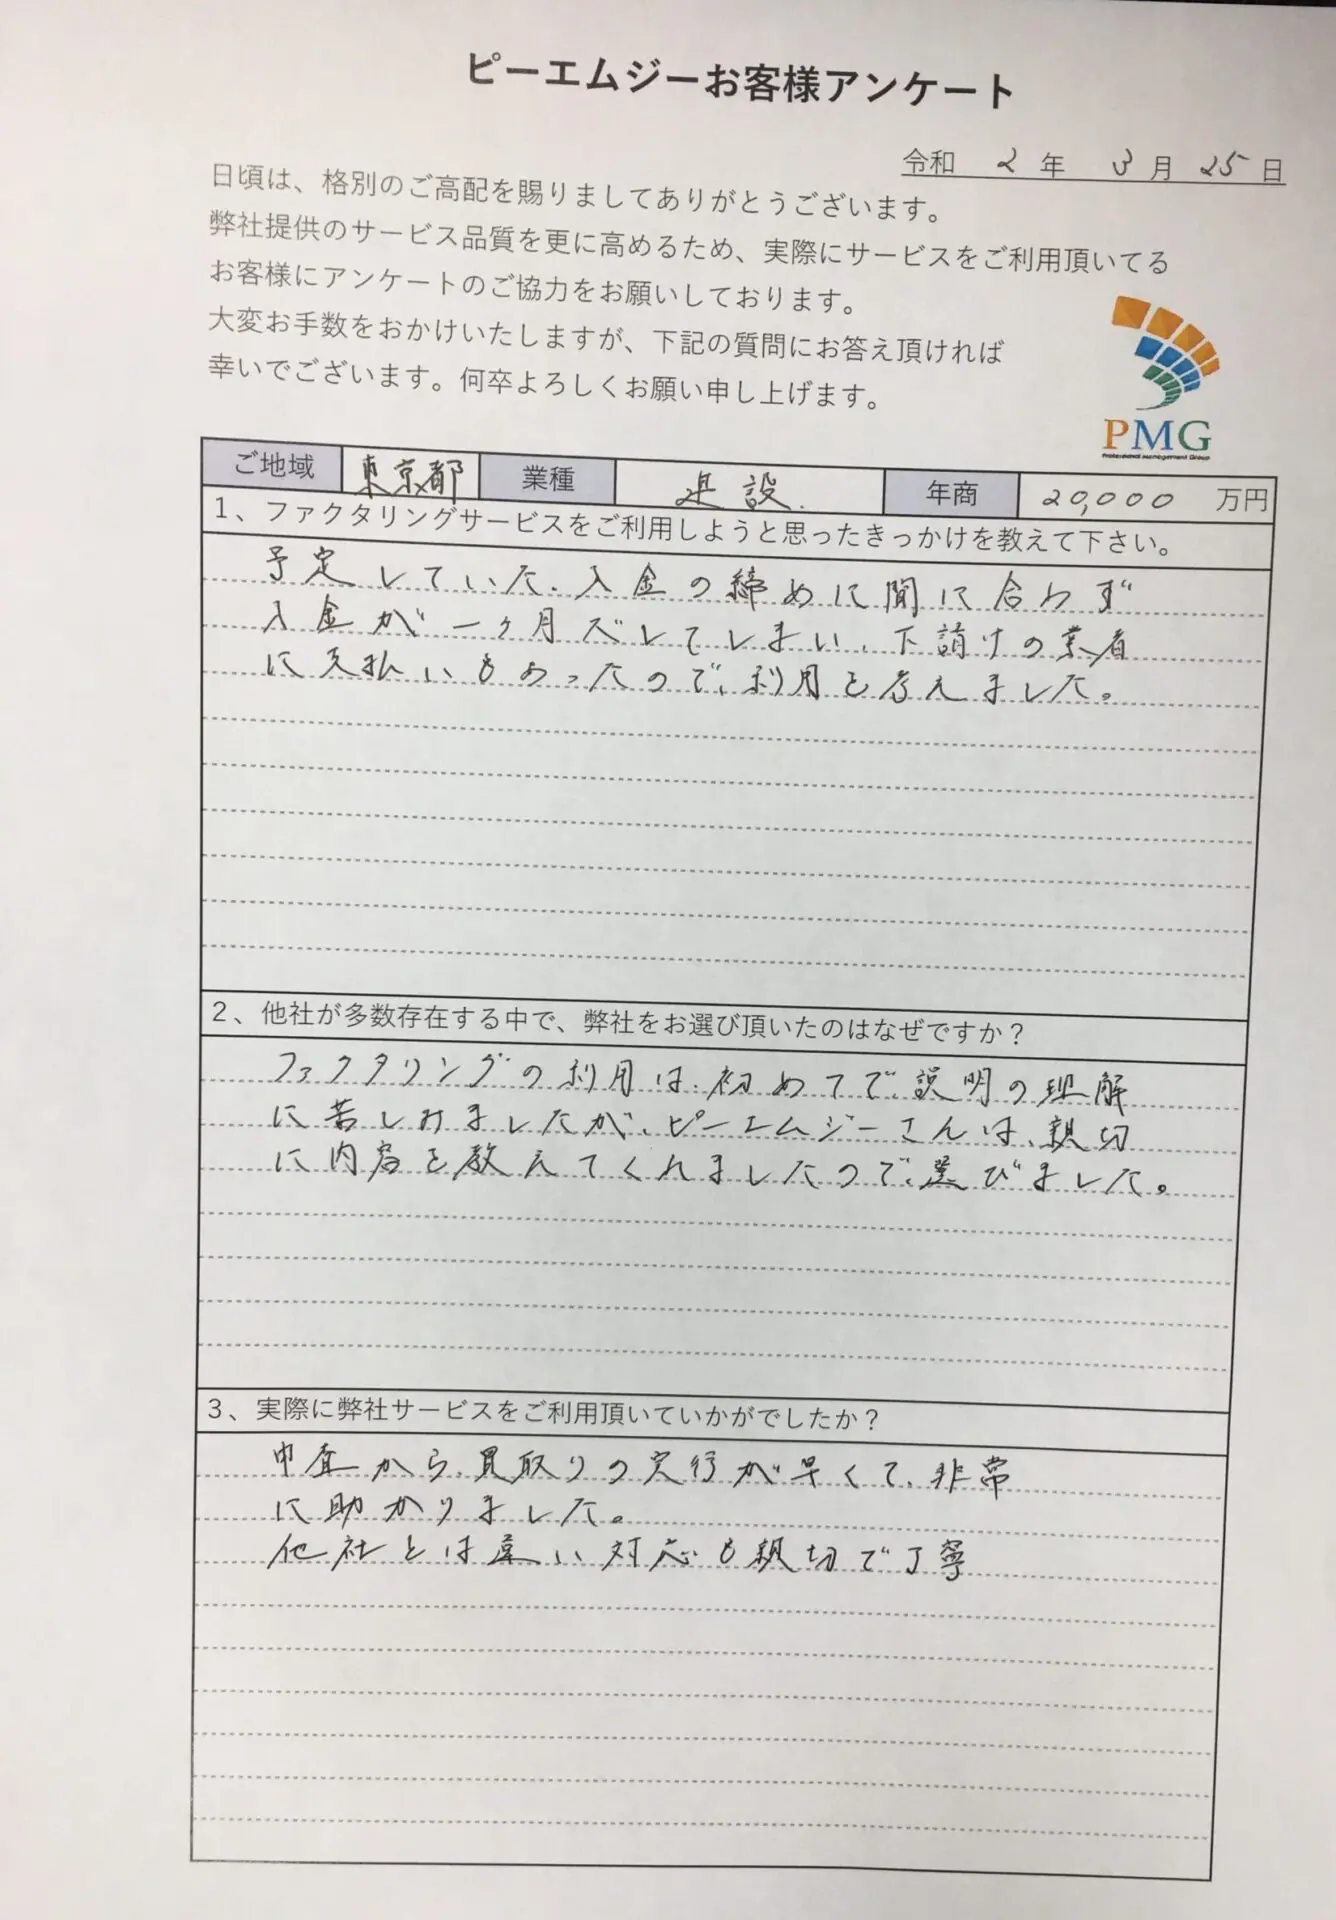 ピーエムジーお客様アンケート
令和 2 年 3 月 25 日
日頃は、格別のご高配を賜りましてありがとうございます。
弊社提供のサービス品質を更に高めるため、実際にサービスをご利用頂いてる
お客様にアンケートのご協力をお願いしております。
大変お手数をおかけいたしますが、下記の質問にお答え頂ければ
幸いでございます。何卒よろしくお願い申し上げます。
PMG
Professional Management Group
ご地域 東京都 業種 建設. 年商 20,000 万円
1、ファクタリングサービスをご利用しようと思ったきっかけを教えて下さい。
予定していた、入金の締めに間に合わず
入金が一ヶ月ズレてしまい、下請けの業者
に支払いもあったので、利用を考えました。
2、他社が多数存在する中で、弊社をお選び頂いたのはなぜですか？
ファクタリングの利用は、初めてで、説明の理解
に苦しみましたが、ピーエムジーさんは、親切
に内容を教えてくれましたので、選びました。
3、実際に弊社サービスをご利用頂いていかがでしたか？
申査から、買取りの実行が早くて、非常
に助かりました。
他社とは違い対応も親切で丁寧